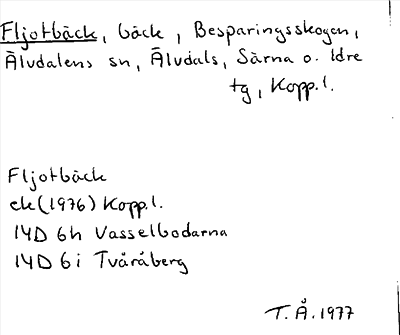 Fljotbäck, bäck, Besparingsskogen,
Älvdalens sn, Älvdals, Särna o. Idre
tg, Kopp. l.
Fljotbäck
ek (1976) Kopp. l.
14D 6h Vasselbodarna
14D 6i Tvåråberg
T. Å. 1977